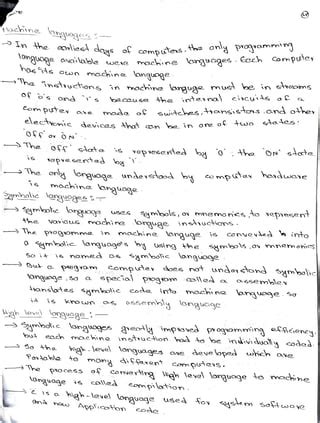 Machine languages :—
→ In the earliest days of computers, the only programming
language available were machine languages. Each computer
has its own machine language
→ The instructions in machine languge must be in streams
of 0's and 1's because the internal circuits of a
computer are made of switches, transistors and other
electronic devices that can be in one of two states:
'Off' or 'ON'.
→ The 'off' state is represented by '0', the 'ON' state
is represented by '1'.
→ The only language understood by computer hardware
is machine language
Symbolic languages :—
→ Symbolic language uses symbols, or mnemonics, to represent
the various machine language instructions.
→ The programme in machine languge is converted into
a symbolic language's by using the symbols, or mnemonics
So it is named as symbolic language.
→ But a computer does not understand symbolic
language. So a special program called a assembler
translates symbolic code into machine language so
it is known as assembly language
High level language :—
→ Symbolic languages greatly improved programming efficiency
but each machine instruction had to be individually coded.
→ So the high-level languages are developed which are
Portable to many different computers.
→ The process of converting High level language to machine
language is called compilation.
→ C is a high-level language used for system software
and now Application code.